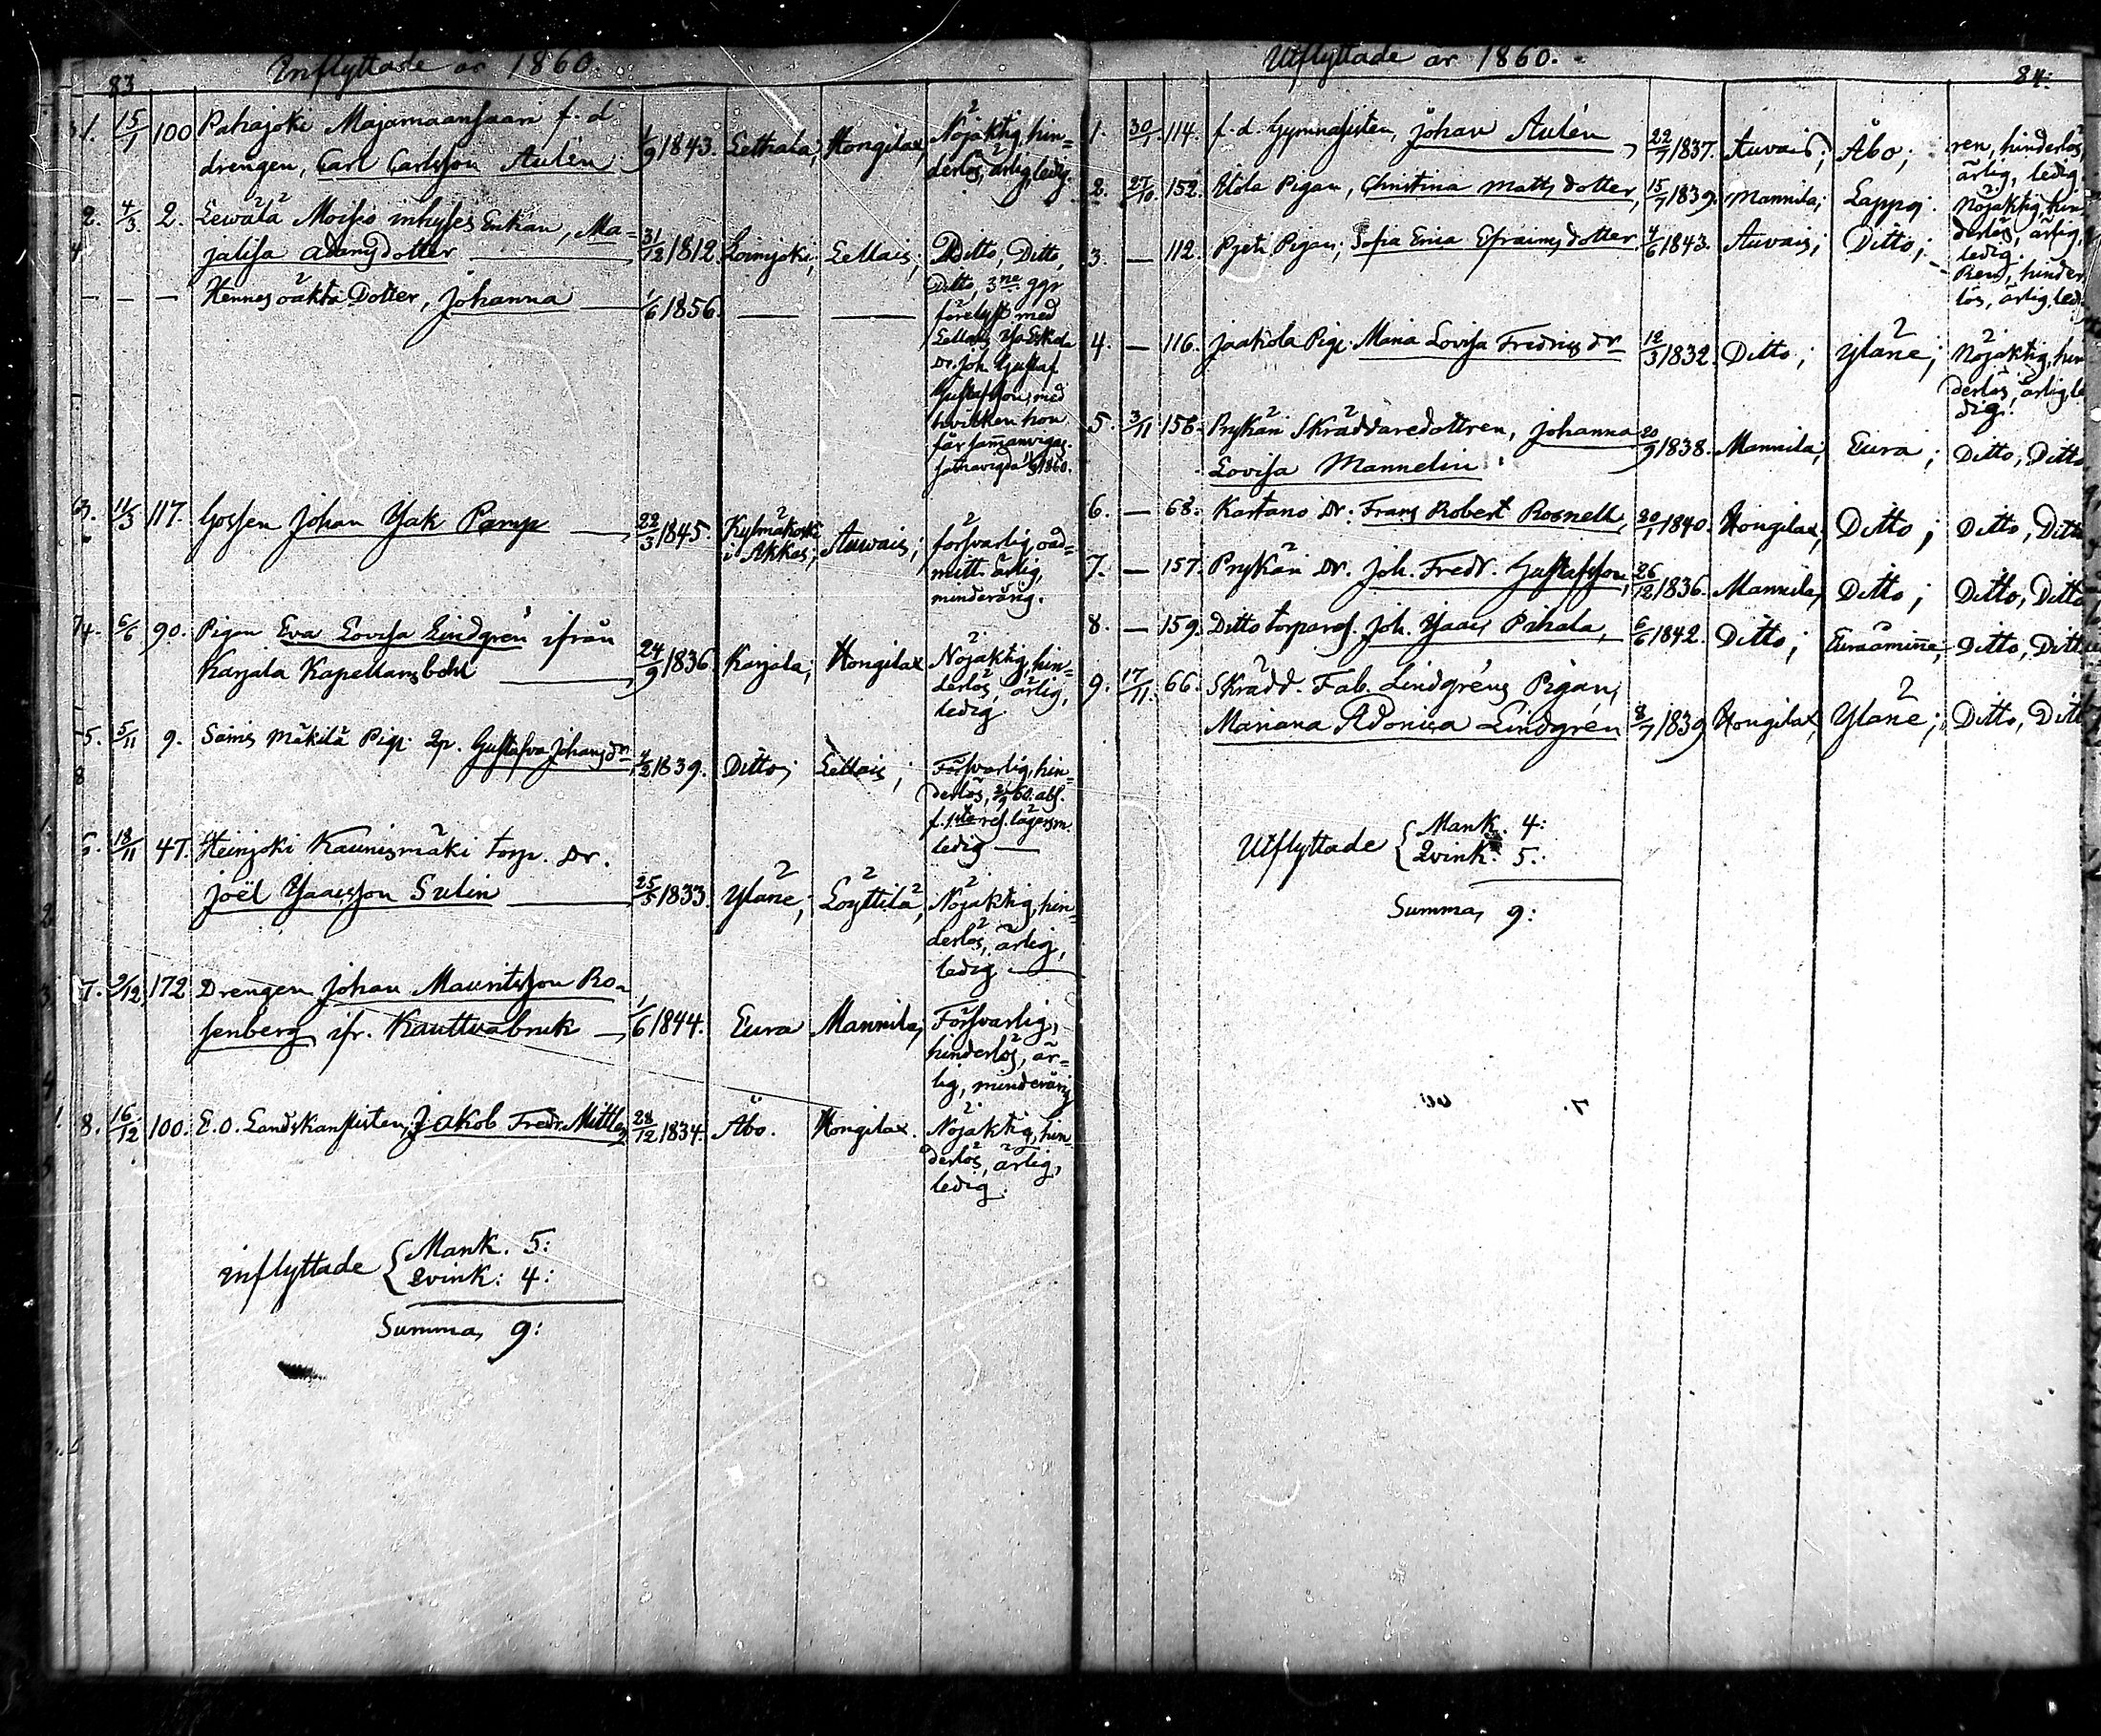 83
Inflyttade år 1860
1. 15/1 100 Pahajoki Majamaansaari f. d
drengen, Carl Carlsson Aulén 1/9 1843. Lethala, Hongilax, Nöjaktig, hin=
derlös, ärlig, ledig.
2. 4/3. 2. Lewälä Moisio inhyses Enkan, Ma=
jalisa Adamsdotter 31/12 1812. Loimijoki; Lellais; Ditto, Ditto,
— — — Hennes oäkta Dotter, Johanna — 1/6 1856. — — Ditto, 3ne ggr
förelyst med
Lellais
Dr. Joh. Gustaf
Gustafsson, med
hvilken hon
får sammanvigas.
1860.
3. 11/3 117. Gossen Johan Isak Pamp — 22/3 1845. Kylmäkoski
i Akkas; Auvais; försvarlig, oad=
mitt. ärlig,
minderårig.
4. 6/6 90. Pigan Eva Lovisa Lindgrén ifrån
Karjala Kapellansbohl — 24/9 1836 Karjala; Hongilax Nöjaktig, hin=
derlös, ärlig,
ledig.
5. 5/11 9. Säinis Mäkilä Pig. Gustafva Johansdr. 4/2 1839. Ditto; Lellais; Försvarlig, hin=
derlös, abs.
ledig —
6. 18/11 47. Heinjoki Kaunismäki torp. Dr.
Joël Isaacsson Sulin — 25/5 1833 Yläne; Löyttilä, Nöjaktig, hin=
derlös, ärlig,
ledig. —
7. 2/12 172 Drengen Johan Mauritsson Ro=
senberg, ifr. Kauttuabruk — 1/6 1844. Eura Mannila, Försvarlig,
hinderlös, är=
lig, minderårig
8. 16/12 100. E. O. Landskanslisten, Jakob Fredr. Mittler 28/12 1834. Åbo. Hongilax. Nöjaktig, hin=
derlös, ärlig,
ledig.
Inflyttade { Mank. 5:
Qvink: 4:
Summa, 9:
Utflyttade år 1860.
84:
1. 30/1 114. f. d. Gymnasisten, Johan Aulén, 22/7 1837. Auvais; Åbo; ren, hinderlös,
ärlig, ledig.
2. 27/10 152. Pigan, Christina Matts dotter, 15/7 1839. Mannila; Lappo; Nöjaktig, hin=
derlös, ärlig,
ledig.
3. — 112. Pigan; Sofia Erica Efraims dotter 4/6 1843. Auvais; Ditto; Ren, hinder
lös, ärlig, led.
4. — 116. Jaakola Pig. Maria Lovisa Fredrics dr 12/3 1832. Ditto; Yläne; Nöjaktig, hin
derlös, ärlig, le
dig.
5. 3/11 156. Prykäri Skräddaredottren, Johanna
Lovisa Mannelin 20/9 1838. Mannila; Eura; Ditto, Ditto
6. — 68. Kartano Dr. Frans Robert Rosnell, 20/1 1840. Hongilax; Ditto; Ditto, Ditto
7. — 157. Prykäri Dr. Joh. Fredr. Gustafsson, 26/12 1836. Mannila, Ditto; Ditto, Ditto
8. — 159. Ditto torpares. Joh. Isaac Pihala, 6/6 1842. Ditto; Euraåminne; Ditto, Ditto
9. 17/11. 66. Skrädd. Fab. Lindgréns Pigan,
Mariana Adonica Lindgrén 8/7 1839 Hongilax, Yläne; Ditto, Ditto
Utflyttade { Mank. 4:
Qvink: 5:
Summa, 9: